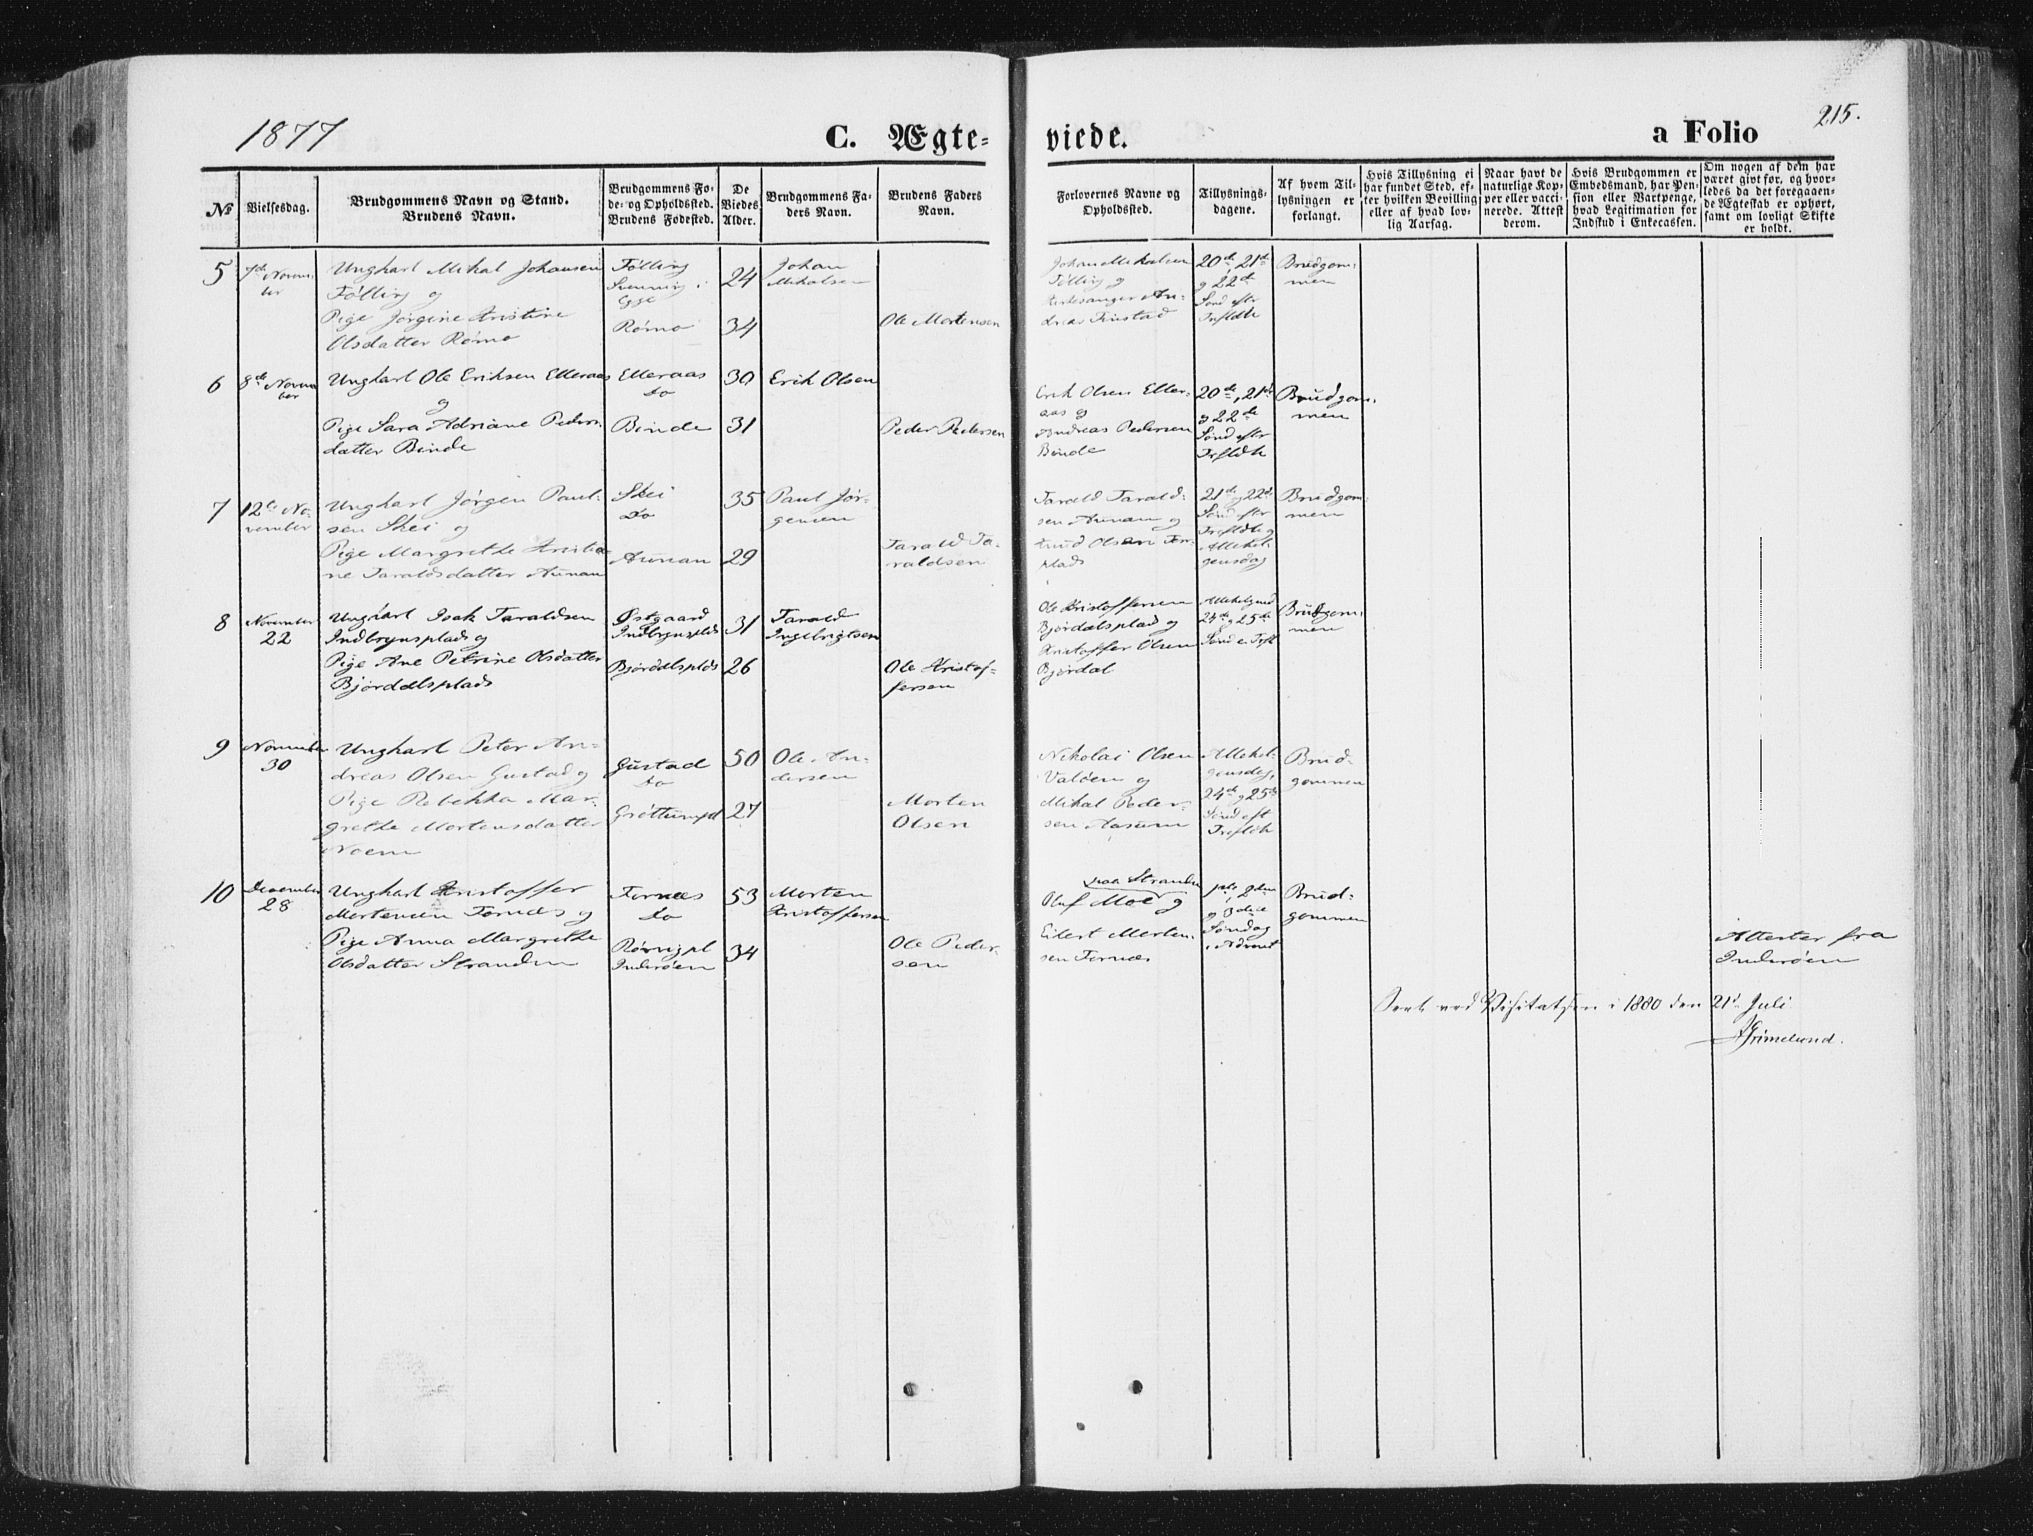 1877
C. Ægte-
viede.
a Folio
215.
№
Vielsesdag.
Brudgommens Navn og Stand.
Brudens Navn.
Brudgommens Fø-
de- og Opholdssted.
Brudens Fødested.
De
Viedes
Alder.
Brudgommens Fa-
ders Navn.
Brudens Faders
Navn.
Forlovernes Navne og
Opholdssted.
Tillysnings-
dagene.
Af hvem Til-
lysningen er
forlangt.
Hvis Tillysning ei
har fundet Sted, ef-
ter hvilken Bevilling
eller af hvad lov-
lig Aarsag.
Naar havt de
naturlige Kop-
per eller vacci-
nerede. Attest
derom.
Hvis Brudgommen er
Embedsmand, har Pen-
sion eller Vartpenge,
hvad Legitimation for
Indskud i Enkecassen.
Om nogen af dem har
været givt før, og hvor-
ledes da det foregaaen-
de Ægteskab er ophørt,
samt om lovligt Skifte
er holdt.
5
7de Novem-
ber
Ungkarl Mikal Johansen
Følling og
Pige Jørgine Kristine
Olsdatter Rømo
Følling
Egge
Rømo
24
34
Johan
Mikalsen
Ole Mortensen
Johan Mikalsen
Følling og
Kirkesanger An-
dreas Tinstad
20de, 21de
og 22de
Sønd efter
Trefldh
Brudgom-
men
6
8de Novem
ber
Ungkarl Ole Eriksen Elleraas
og
Pige Sara Adriane Peders-
datter Binde
Elleraas
do
Binde
30
31
Erik Olsen
Peder Pedersen
Erik Olsen Eller-
aas og
Andreas Pedersen
Binde
20de, 21de
og 22de
Sønd efter
Trefldh
Brudgom-
men
7
12te No-
vember
Ungkarl Jørgen Paul-
sen Skei og
Pige Margrethe Kristia-
ne Taraldsdatter Aunan
Skei
do
Aunan
35
29
Paul Jør-
gensen
Tarald Ta-
raldsen
Tarald Tarald-
sen Aunan og
Knud Olsen
plads
21de og 22de
Sønd efter
Trefldh og
Allehel-
gensdag
Brudgom-
men
8
November
22
Ungkarl Isak Taraldsen
Indbrynsplads og
Pige Ane Petrine Olsdatter
Bjørdalsplads
Østgaard
Indbrynsplds
Bjørdalsplds
31
26
Tarald
Ingebrigtsen
Ole Kristof-
fersen
Ole Kristoffersen
Bjørdalsplads og
Kristoffer Olsen
Bjørdal
24de og 25de
Sønd e. Trefl
Brudgom-
men
9
November
30
Ungkarl Peter An-
dreas Olsen Gustad og
Pige Rebekka Mar-
grethe Mortensdatter
Noem
Gustad
do
Grøttumpl
50
27
Ole An-
dersen
Morten
Olsen
Nikolai Olsen
Valøen og
Mikal Peder-
sen Aasum
Allehel-
gensdag,
24de og 25de
Sønd eft
Trefldh
Brud-
gommen
10
December
28
Ungkarl Kristoffer
Mortensen Fornes og
Pige Anna Margrethe
Olsdatter Stranden
Fornes
do
Rørvigpl
Inderøen
53
34
Morten
Kristoffersen
Ole Peder-
sen
paa Stranden
Oluf Moe og
Eilert Morten-
sen Fornes
1ste, 2den
og 3die
Søndag
i Advent
Brud-
gommen
Attester fra
Inderøen
Seet ved Visitatsen i 1880 den 21de Juli
Grimelund.